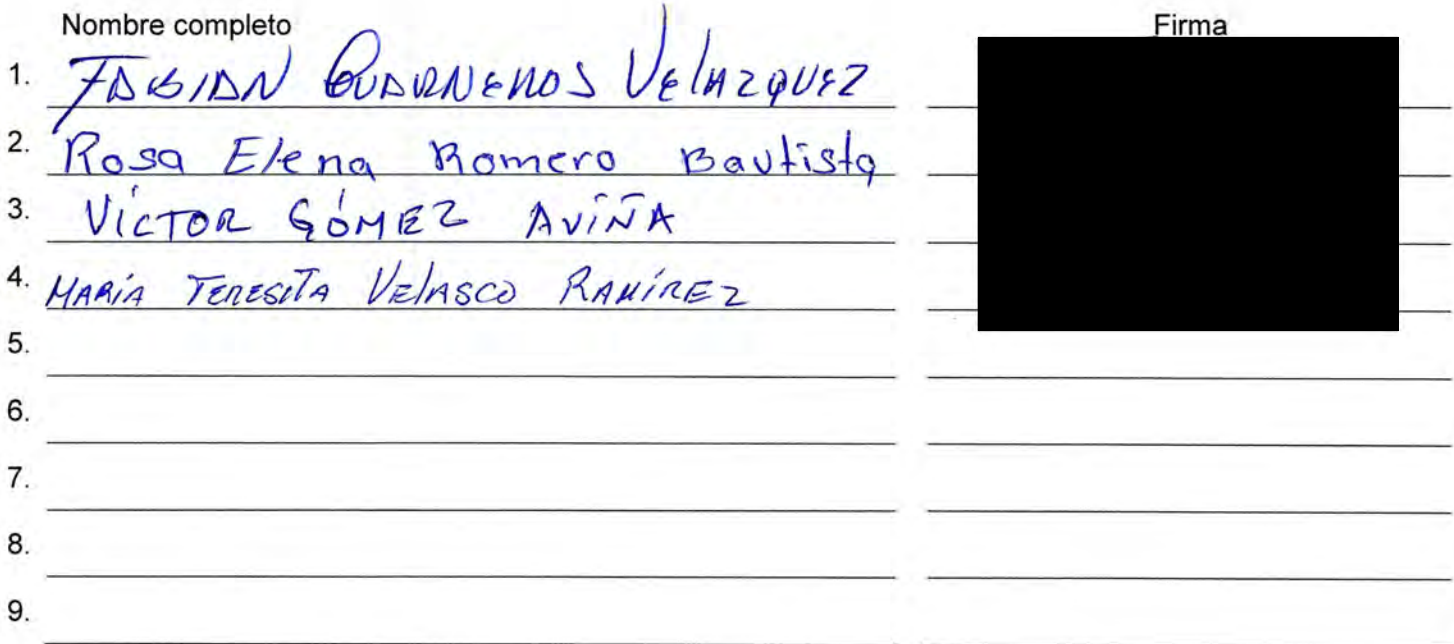 Nombre completo Firma
1. FABIAN GUARNEROS VELAZQUEZ
2. Rosa Elena Romero Bautista
3. VÍCTOR GÓMEZ AVIÑA
4. MARÍA TERESITA VELASCO RAMÍREZ
5.
6.
7.
8.
9.